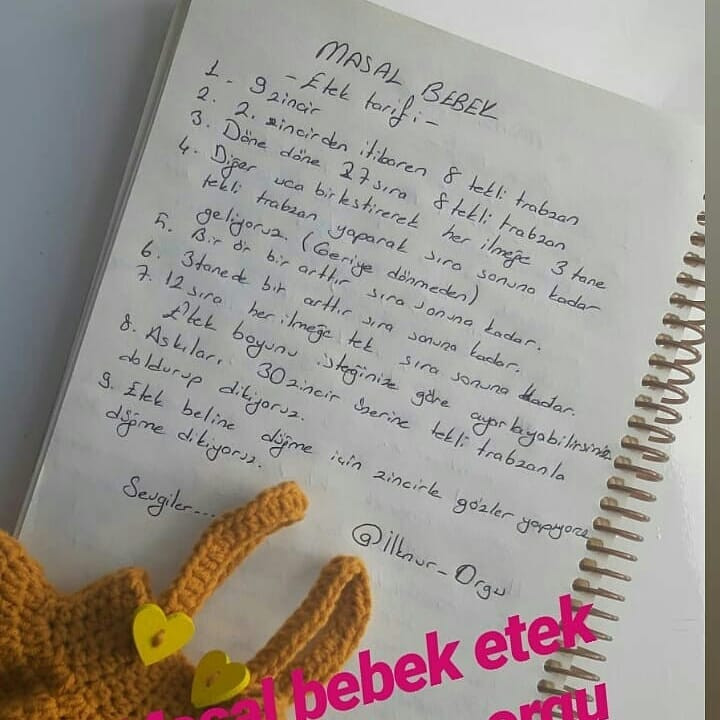 MASAL BEBEK
- Etek tarifi -
1. 9 zincir
2. 2. zincirden itibaren 8 tekli trabzan
3. Döne döne 27 sıra 8 tekli trabzan
4. Diğer uca birleştirerek her ilmeğe 3 tane
tekli trabzan yaparak sıra sonuna kadar
geliyoruz. (Geriye dönmeden)
5. Bir ör bir arttır sıra sonuna kadar.
6. 3 tanede bir arttır sıra sonuna kadar.
7. 12 sıra her ilmeğe tek sıra sonuna kadar.
Etek boyunu isteğinize göre ayarlayabilirsiniz.
8. Askıları, 30 zincir üzerine tekli trabzanla
doldurup dikiyoruz.
9. Etek beline düğme için zincirle gözler yapıyoruz
düğme dikiyoruz.
Sevgiler...
@ilknur-Orgu
Masal bebek etek
orgu